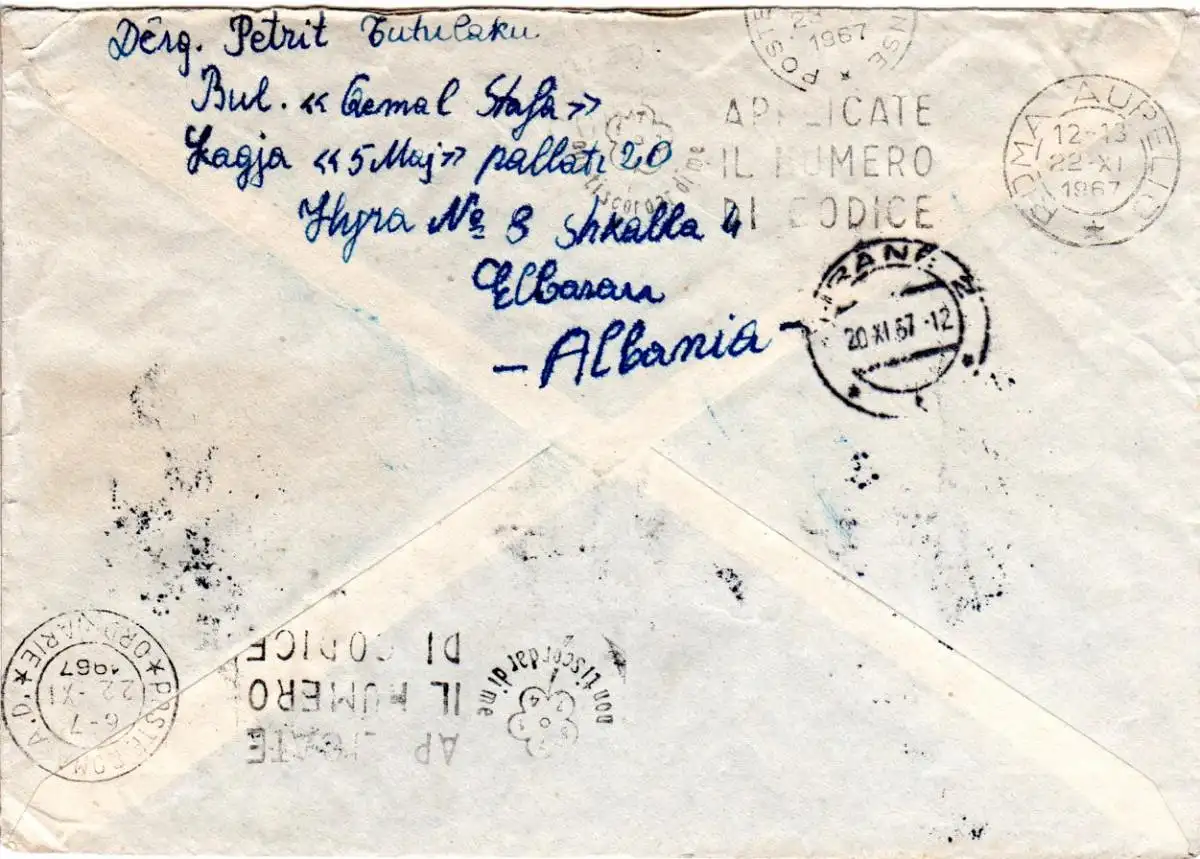 Dërg. Petrit Tutulaku
Bul. « Qemal Stafa »
Lagja « 5 Maj » pallati 20
Hyra № 3 Shkalla 4
Elbasan
- Albania -
POSTE
1967
APPLICATE
IL NUMERO
DI CODICE
non ti scordar di me
ROMA AURELIO
12-13
22-XI
1967
*
TIRANA 2
20.XI.67.-12
* POSTE ROMA A.D. * ORDINARIE
6-7
22-XI
1967
APPLICATE
IL NUMERO
DI CODICE
non ti scordar di me